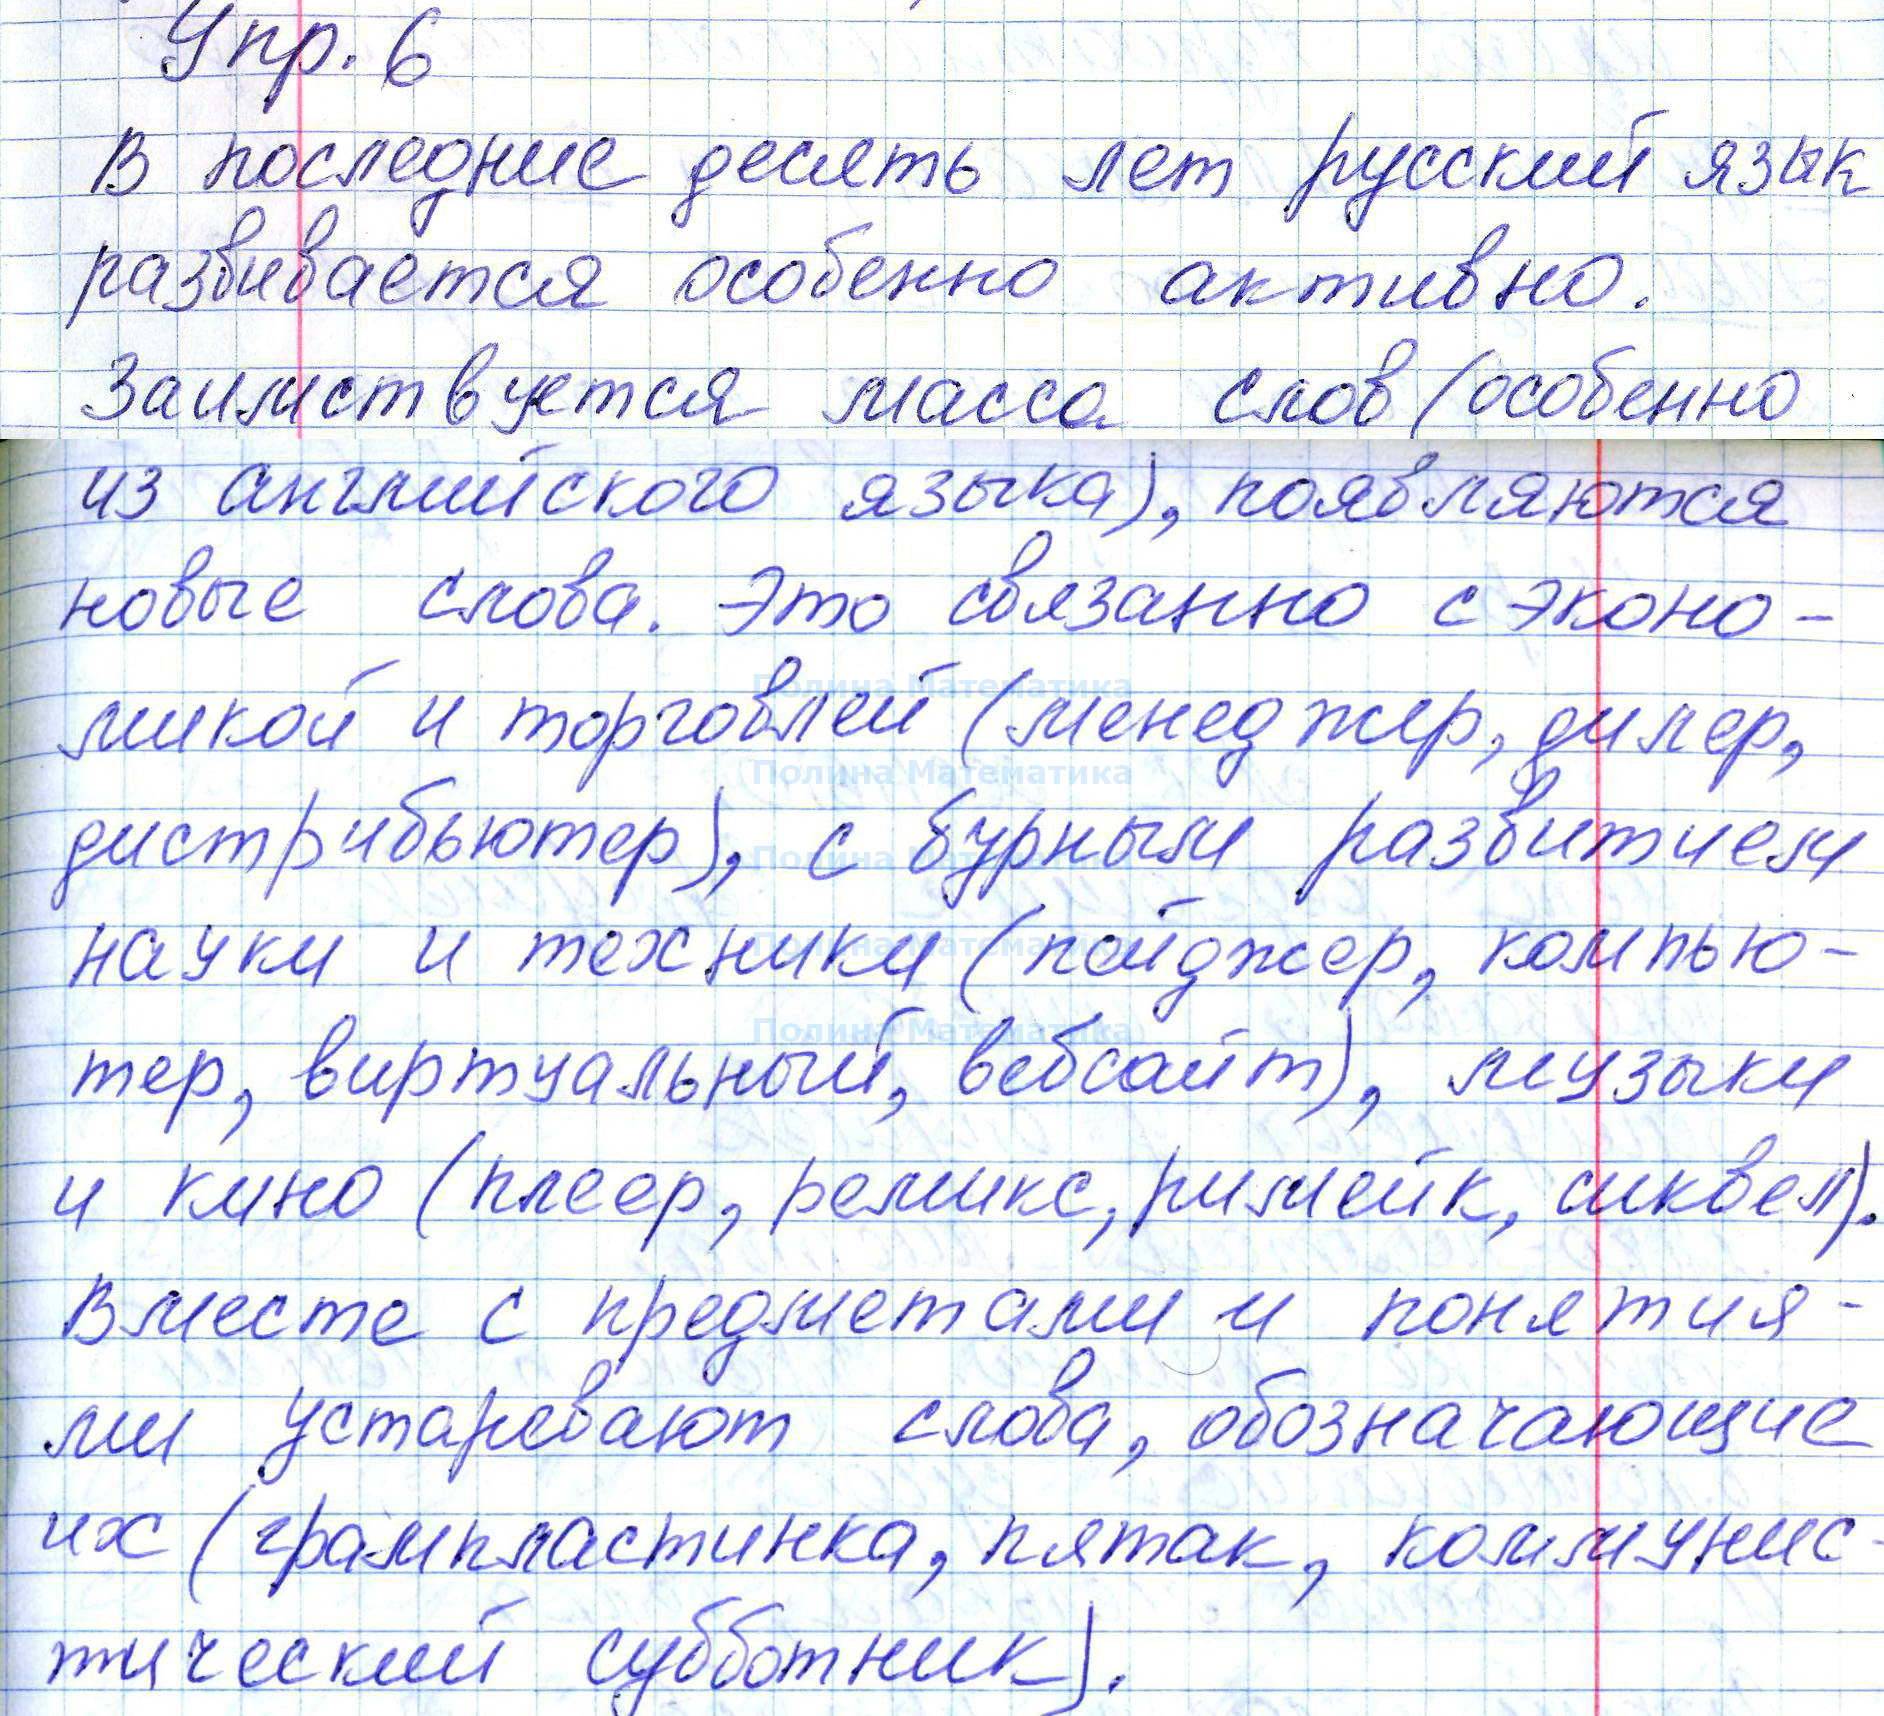 Упр. 6
В последние десять лет русский язык
развивается особенно активно.
Заимствуется масса слов (особенно
из английского языка), появляются
новые слова. Это связанно с эконо-
микой и торговлей (менеджер, дилер,
Полина Математика
Полина Математика
дистрибьютер), с бурным развитием
Полина Математика
науки и техники (пейджер, компью-
Полина Математика
тер, виртуальный, вебсайт), музыки
Полина Математика
и кино (плеер, ремикс, римейк, сиквел).
Вместе с предметами и понятия-
ми устаревают слова, обозначающие
их (грампластинка, пятак, коммунис-
тический субботник).